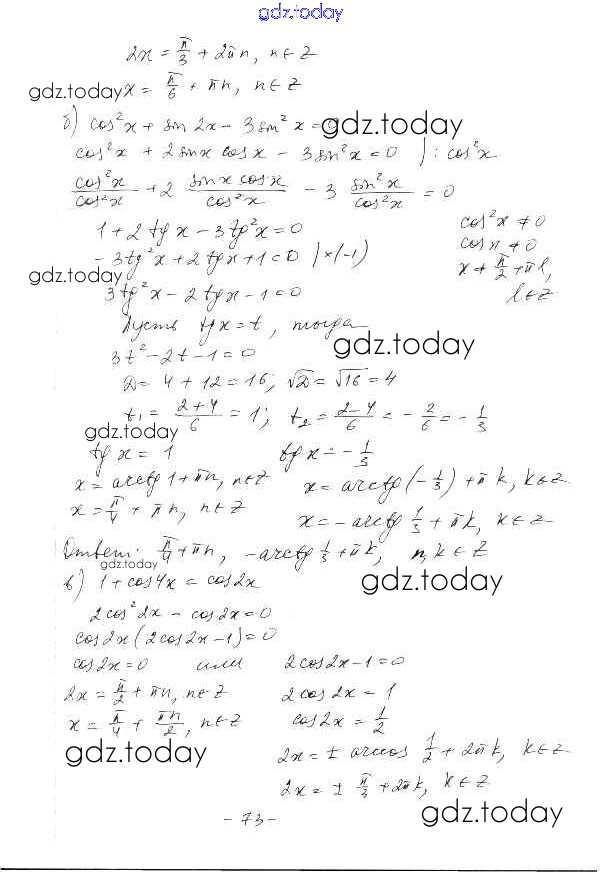 gdz.today
2x = π/3 + 2πn, n∈Z
gdz.today x = π/6 + πn, n∈Z
б) cos²x + sin 2x - 3 sin²x = 0 gdz.today
cos²x + 2 sinx cosx - 3 sin²x = 0 ) : cos²x
cos²x/cos²x + 2 sinx cosx/cos²x - 3 sin²x/cos²x = 0
1 + 2 tg x - 3 tg²x = 0 cos²x ≠ 0
cosx ≠ 0
- 3 tg²x + 2 tgx + 1 = 0 |×(-1) x ≠ π/2 + πl,
gdz.today
3 tg²x - 2 tgx - 1 = 0 l∈Z
Пусть tgx = t, тогда
gdz.today
3t² - 2t - 1 = 0
D = 4 + 12 = 16; √D = √16 = 4
t₁ = (2+4)/6 = 1; t₂ = (2-4)/6 = -2/6 = -1/3
gdz.today
tg x = 1 tg x = -1/3
x = arctg 1 + πn, n∈Z x = arctg(-1/3) + πk, k∈Z
x = π/4 + πn, n∈Z x = -arctg 1/3 + πk, k∈Z
Ответ: π/4 + πn, -arctg 1/3 + πk, n,k∈Z
gdz.today
в) 1 + cos4x = cos2x gdz.today
2cos²2x - cos2x = 0
cos2x (2cos2x - 1) = 0
cos2x = 0 или 2cos2x - 1 = 0
2x = π/2 + πn, n∈Z 2cos2x = 1
x = π/4 + πn/2, n∈Z cos2x = 1/2
gdz.today 2x = ± arccos 1/2 + 2πk, k∈Z
2x = ± π/3 + 2πk, k∈Z
gdz.today
- 73 -